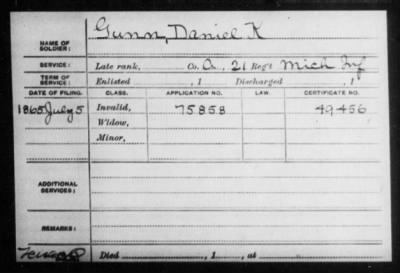 Gunn, Daniel K
NAME OF SOLDIER:
SERVICE: Late rank, Co. A, 21 Reg't Mich Inf
TERM OF SERVICE: Enlisted , 1 Discharged , 1
DATE OF FILING. CLASS. APPLICATION NO. LAW. CERTIFICATE NO.
1865 July 5 Invalid, 75858 49456
Widow,
Minor,
ADDITIONAL SERVICES:
REMARKS:
Died , 1 , at